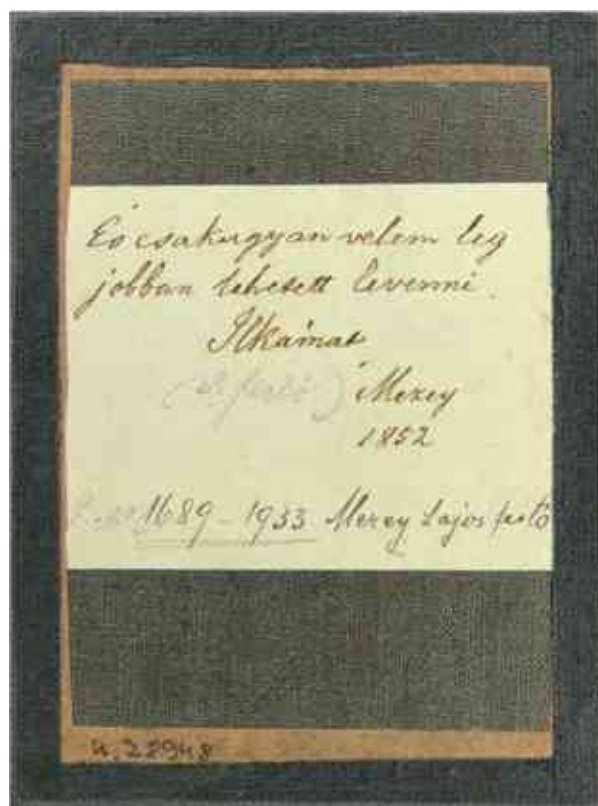 És csakugyan velem leg
jobban lehetett levenni.
Ilkámat
(A festő) Mezey
1852
1689 - 1933 Mezey Lajos festő
4.28948